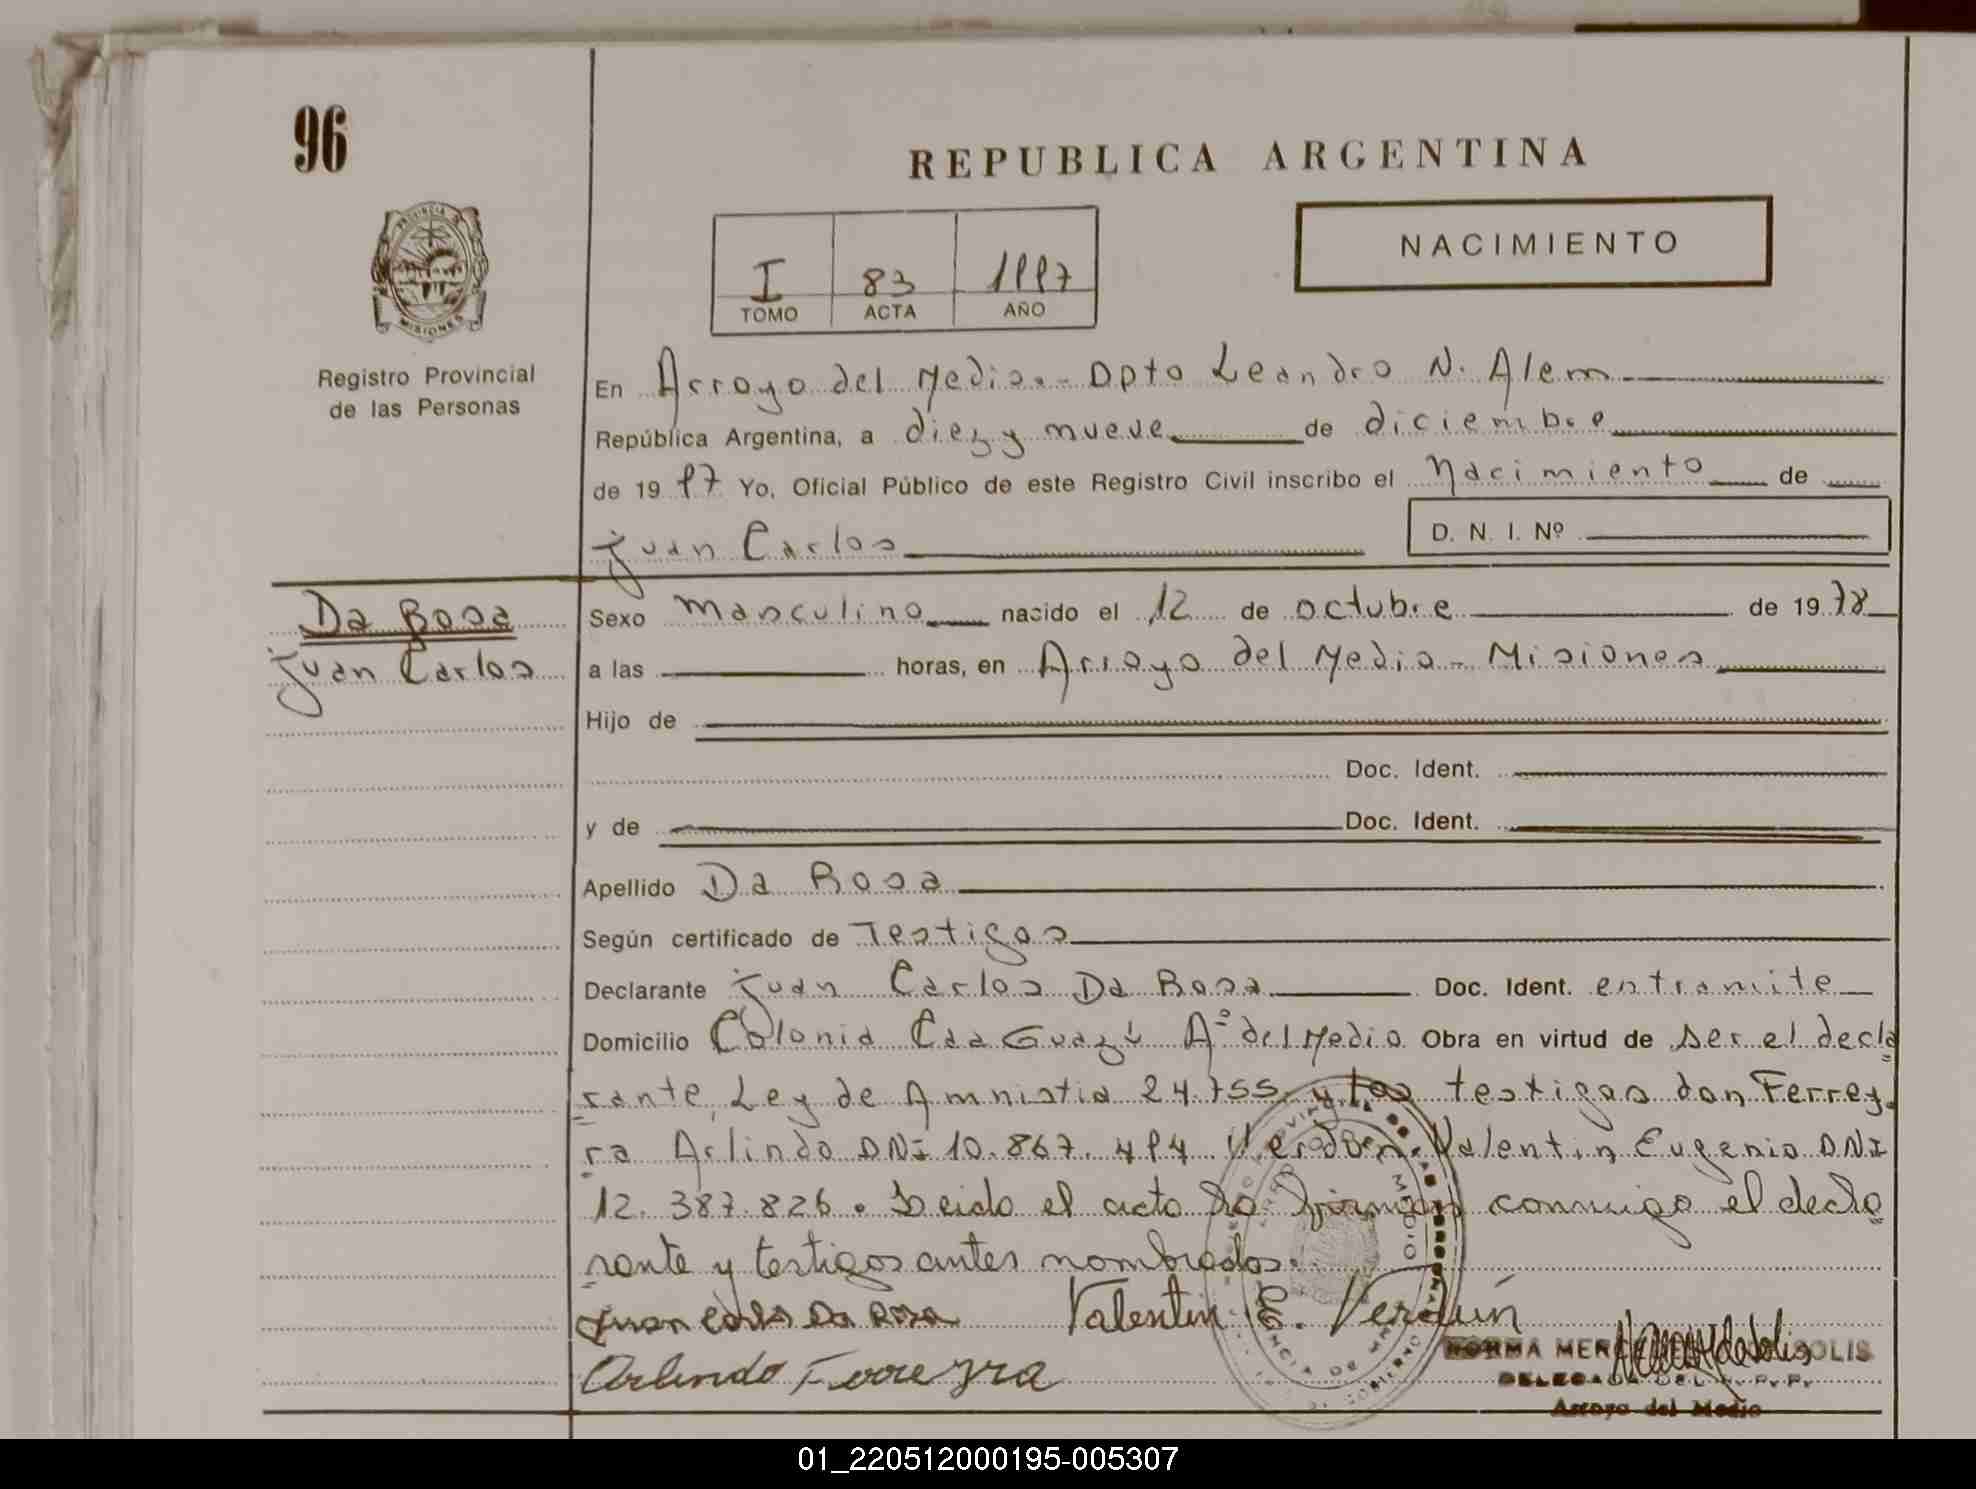 96
REPUBLICA ARGENTINA
NACIMIENTO
I 83 1997
TOMO ACTA AÑO
MISIONES
Registro Provincial
de las Personas
En Arroyo del Medio.- Dpto Leandro N. Alem
República Argentina, a diez y nueve de diciembre
de 19 97 Yo, Oficial Público de este Registro Civil inscribo el Nacimiento de
Juan Carlos D. N. I. Nº
Da Rosa
Juan Carlos
Sexo masculino nacido el 12 de octubre de 19 78
a las horas, en Arroyo del Medio - Misiones
Hijo de
Doc. Ident.
y de Doc. Ident.
Apellido Da Rosa
Según certificado de Testigos
Declarante Juan Carlos Da Rosa Doc. Ident. entramite
Domicilio Colonia Caa Guazú Aº del Medio Obra en virtud de ser el decla
rante, Ley de Amnistia 24.755, y los testigos don Ferrey
ra Arlindo DNI 10.867.494 Valentin Eugenio DNI
12.387.826. Leido el acto lo firman conmigo el decla
rante y testigos antes nombrados.
Juan Carlos Da Rosa Valentin E. Verdún
Arlindo Ferreyra
NORMA SOLIS
DELEGADA DEL R. P. P.
Arroyo del Medio
01_220512000195-005307